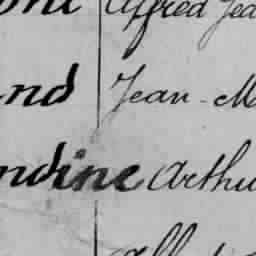 Alfred Jea
nd Jean-M
ndine Arthu